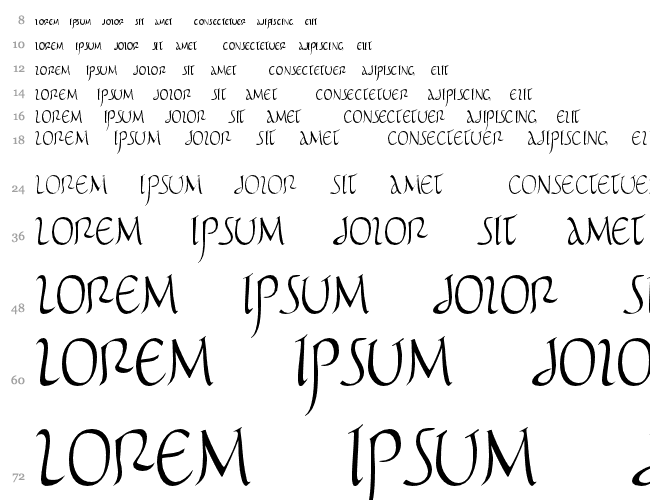 8 LOREM IPSUM DOLOR SIT AMET CONSECTETUER ADIPISCING ELIT
10 LOREM IPSUM DOLOR SIT AMET CONSECTETUER ADIPISCING ELIT
12 LOREM IPSUM DOLOR SIT AMET CONSECTETUER ADIPISCING ELIT
14 LOREM IPSUM DOLOR SIT AMET CONSECTETUER ADIPISCING ELIT
16 LOREM IPSUM DOLOR SIT AMET CONSECTETUER ADIPISCING ELIT
18 LOREM IPSUM DOLOR SIT AMET CONSECTETUER ADIPISCING EL
24 LOREM IPSUM DOLOR SIT AMET CONSECTETUE
36 LOREM IPSUM DOLOR SIT AMET
48 LOREM IPSUM DOLOR S
60 LOREM IPSUM DOLO
72 LOREM IPSUM